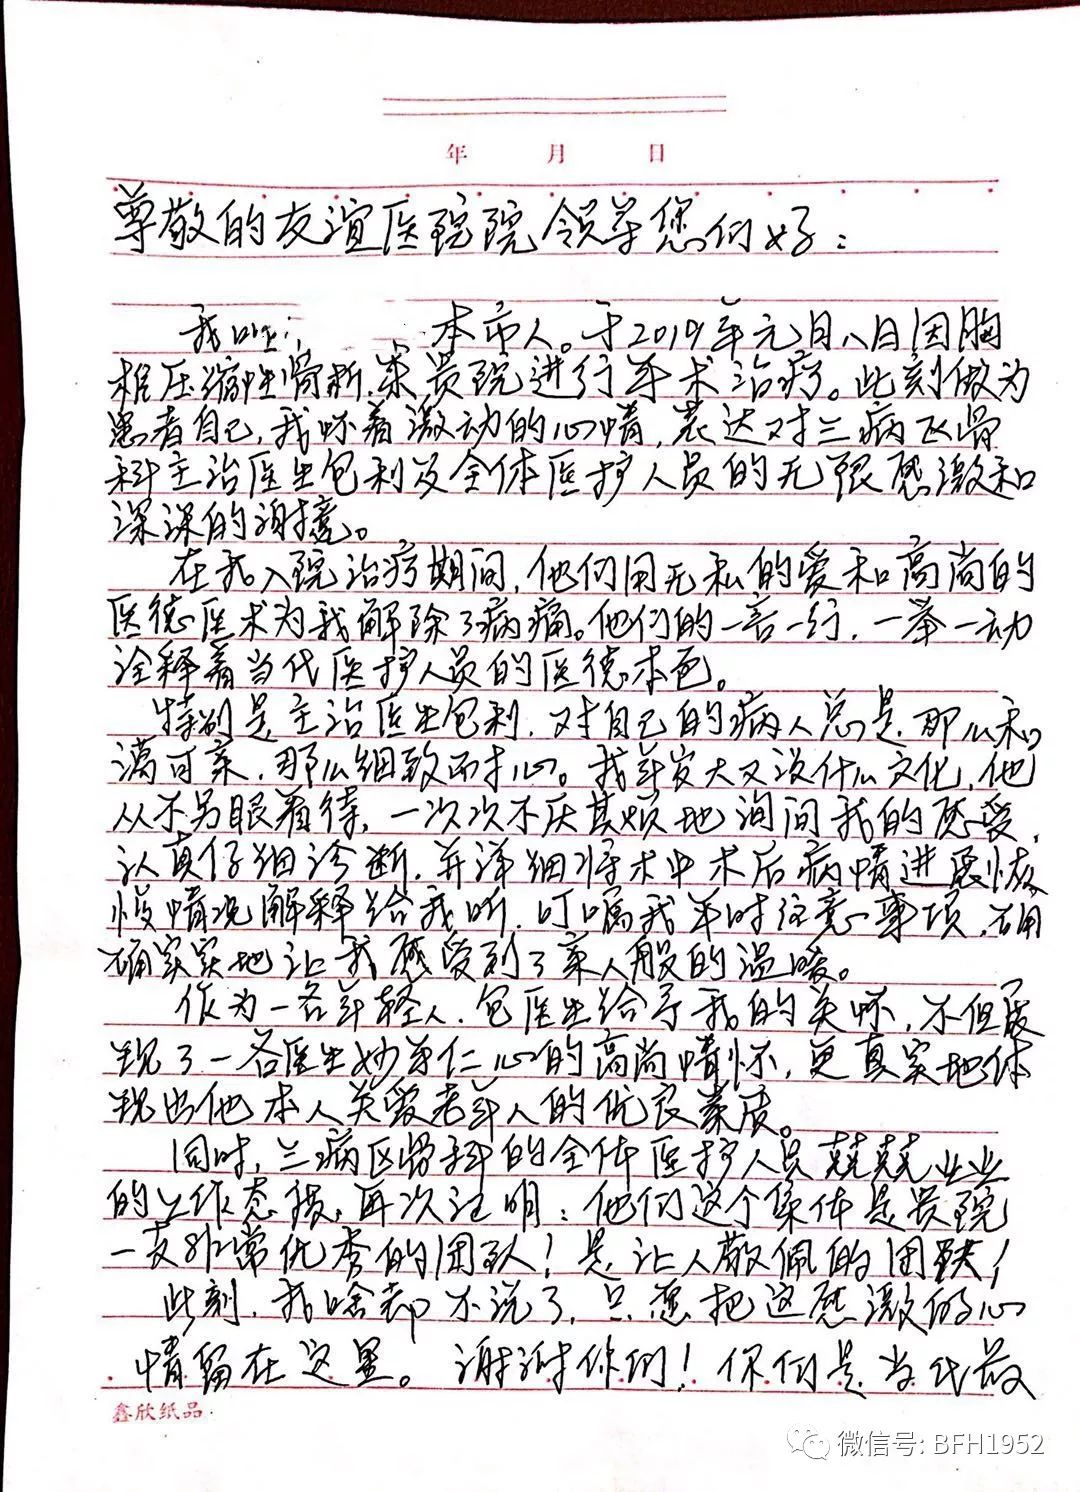 年 月 日
尊敬的友谊医院院领导您们好：
我叫 本市人。于2019年元月八日因胸
椎压缩性骨折，来贵院进行手术治疗。此刻做为
患者自己，我怀着激动的心情，表达对三病区骨
科主治医生包利及全体医护人员的无限感激和
深深的谢意。
在我入院治疗期间，他们用无私的爱和高尚的
医德医术为我解除了病痛。他们的一言一行，一举一动
诠释着当代医护人员的医德本色。
特别是主治医生包利，对自己的病人总是那么和
蔼可亲，那么细致而才心。我年岁大又没什么文化，他
从不另眼看待，一次次不厌其烦地询问我的感受，
认真仔细诊断，并详细将术中术后病情进展恢
复情况解释给我听，叮嘱我平时注意事项，确
确实实地让我感受到了亲人般的温暖。
作为一名年轻人，包医生给予我的关怀，不但展
现了一名医生妙手仁心的高尚情怀，更真实地体
现出他本人关爱老年人的优良素质。
同时，三病区骨科的全体医护人员兢兢业业
的工作态度，再次证明：他们这个集体是贵院
一支非常优秀的团队！是让人敬佩的团队！
此刻，我啥都不说了，只想把这感激的心
情留在这里。谢谢你们！你们是当代最
鑫欣纸品
微信号: BFH1952